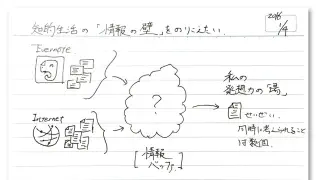 知的生活の「情報の壁」をのりこえたい.
2016
1/4
Evernote
Internet
?
[情報
バッファ]
私の
発想のの「場」
せいぜい.
同時に考えられること
は数個.